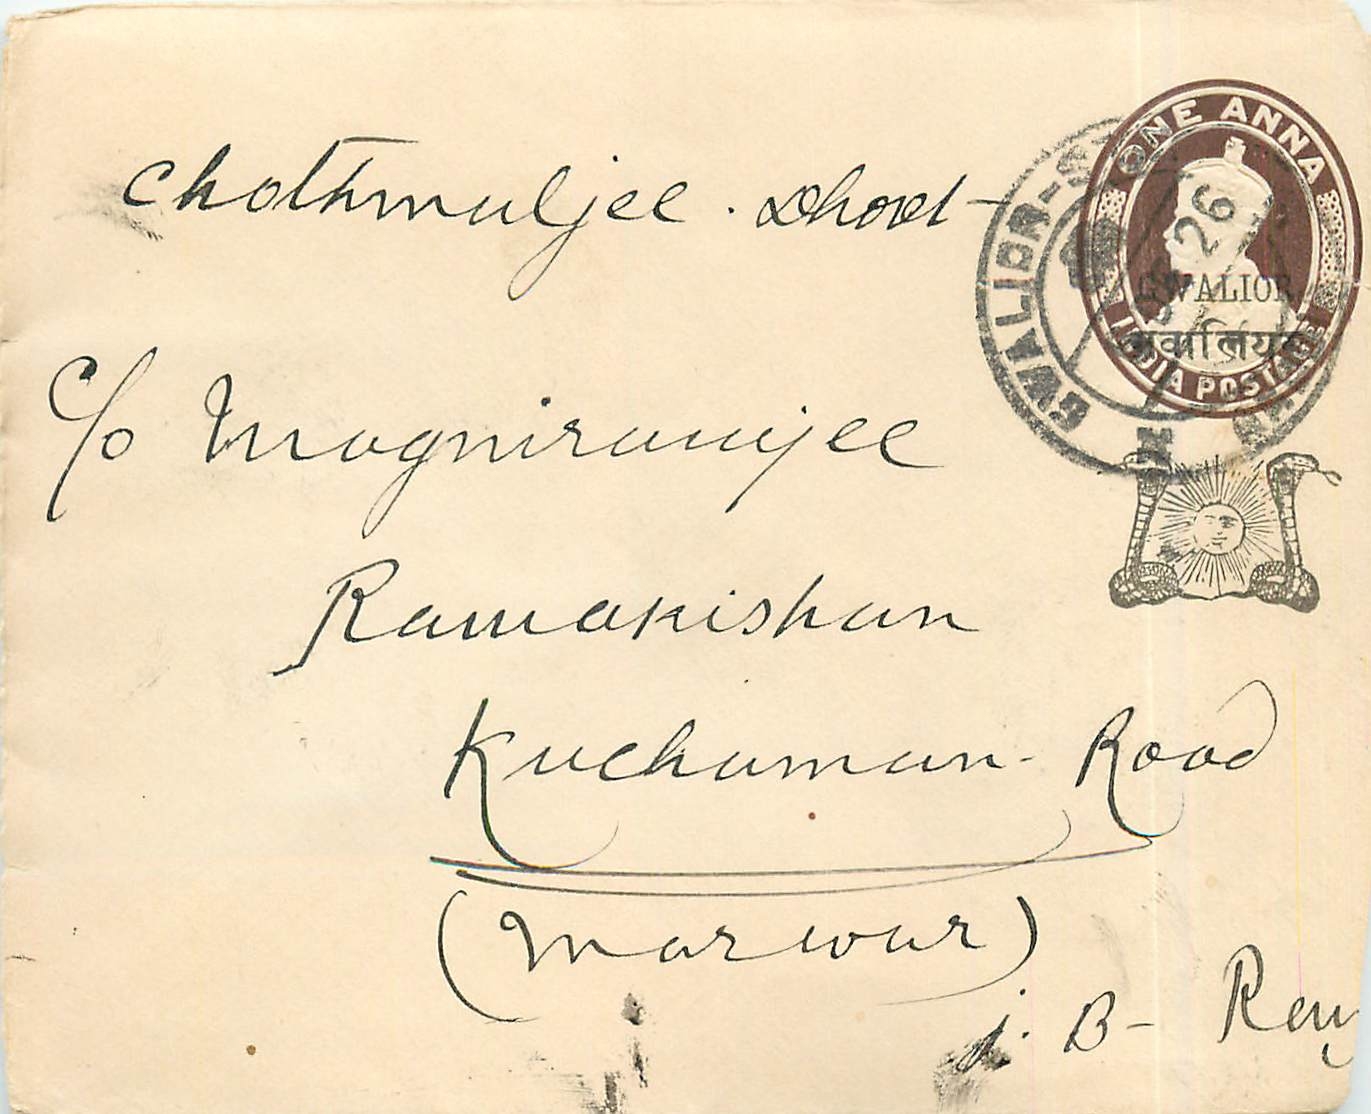 ONE ANNA
26
GWALIOR
ग्वालियर
INDIA POSTAGE
GWALIOR
Chothmuljee . Dhoot -
c/o Magniramjee
Ramakishan
Kuchaman - Road
(Marwar)
J. B - Rey